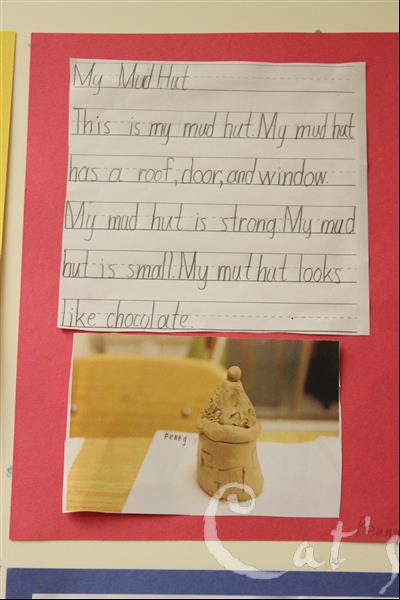 My Mud Hut
This is my mud hut. My mud hut
has a roof, door, and window.
My mud hut is strong. My mud
hut is small. My mut hut looks
like chocolate.
penny
Cat's